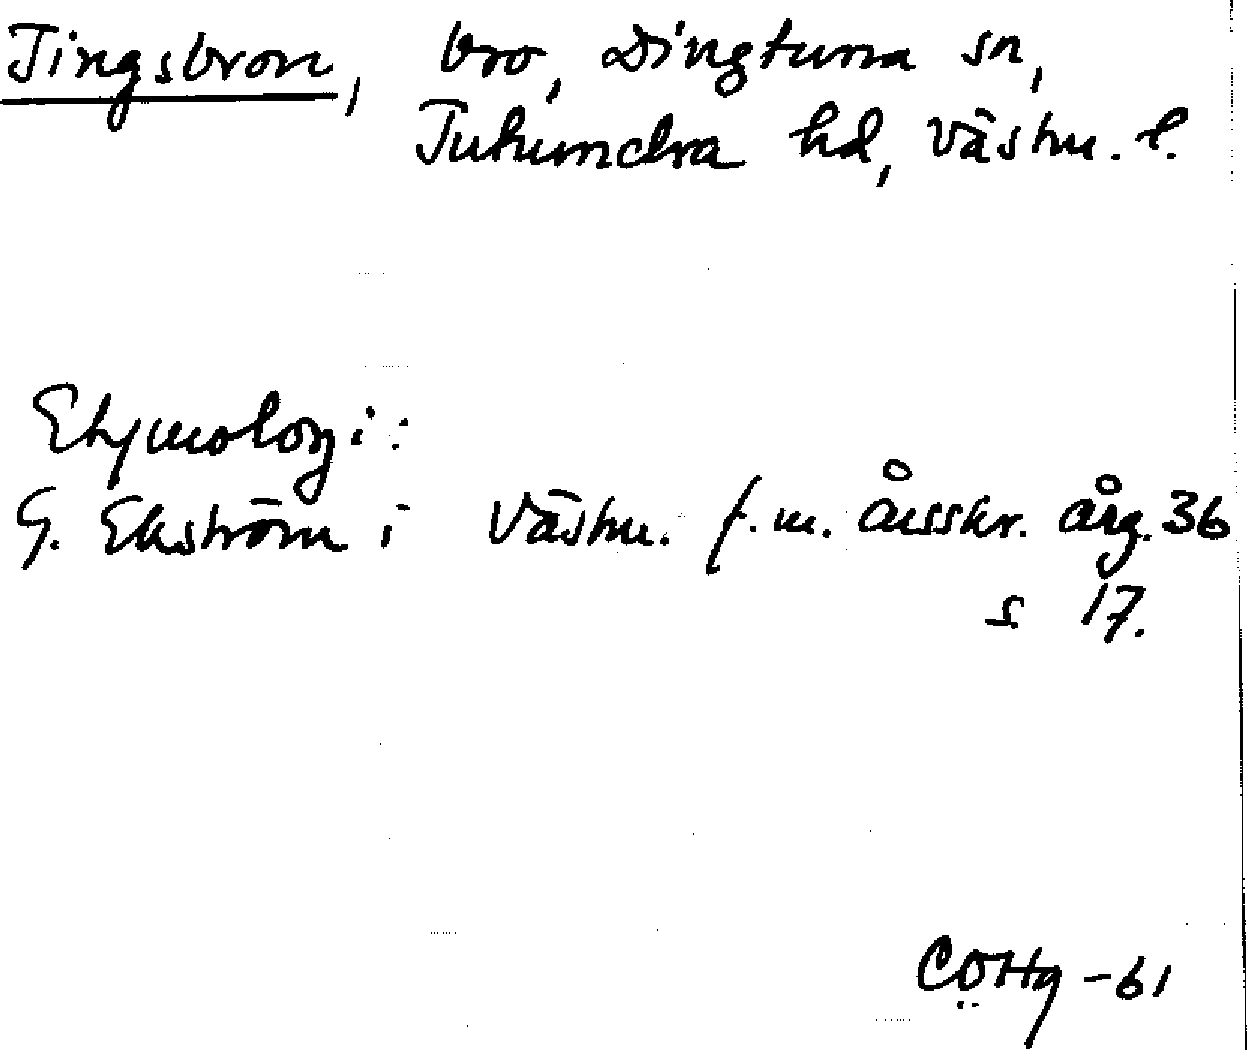 Tingsbron, bro, Dingtuna sn,
Tuhundra hd, Västm. l.
Etymologi:
G. Ekström i Västm. f.m. årsskr. årg. 36
s 17.
-61